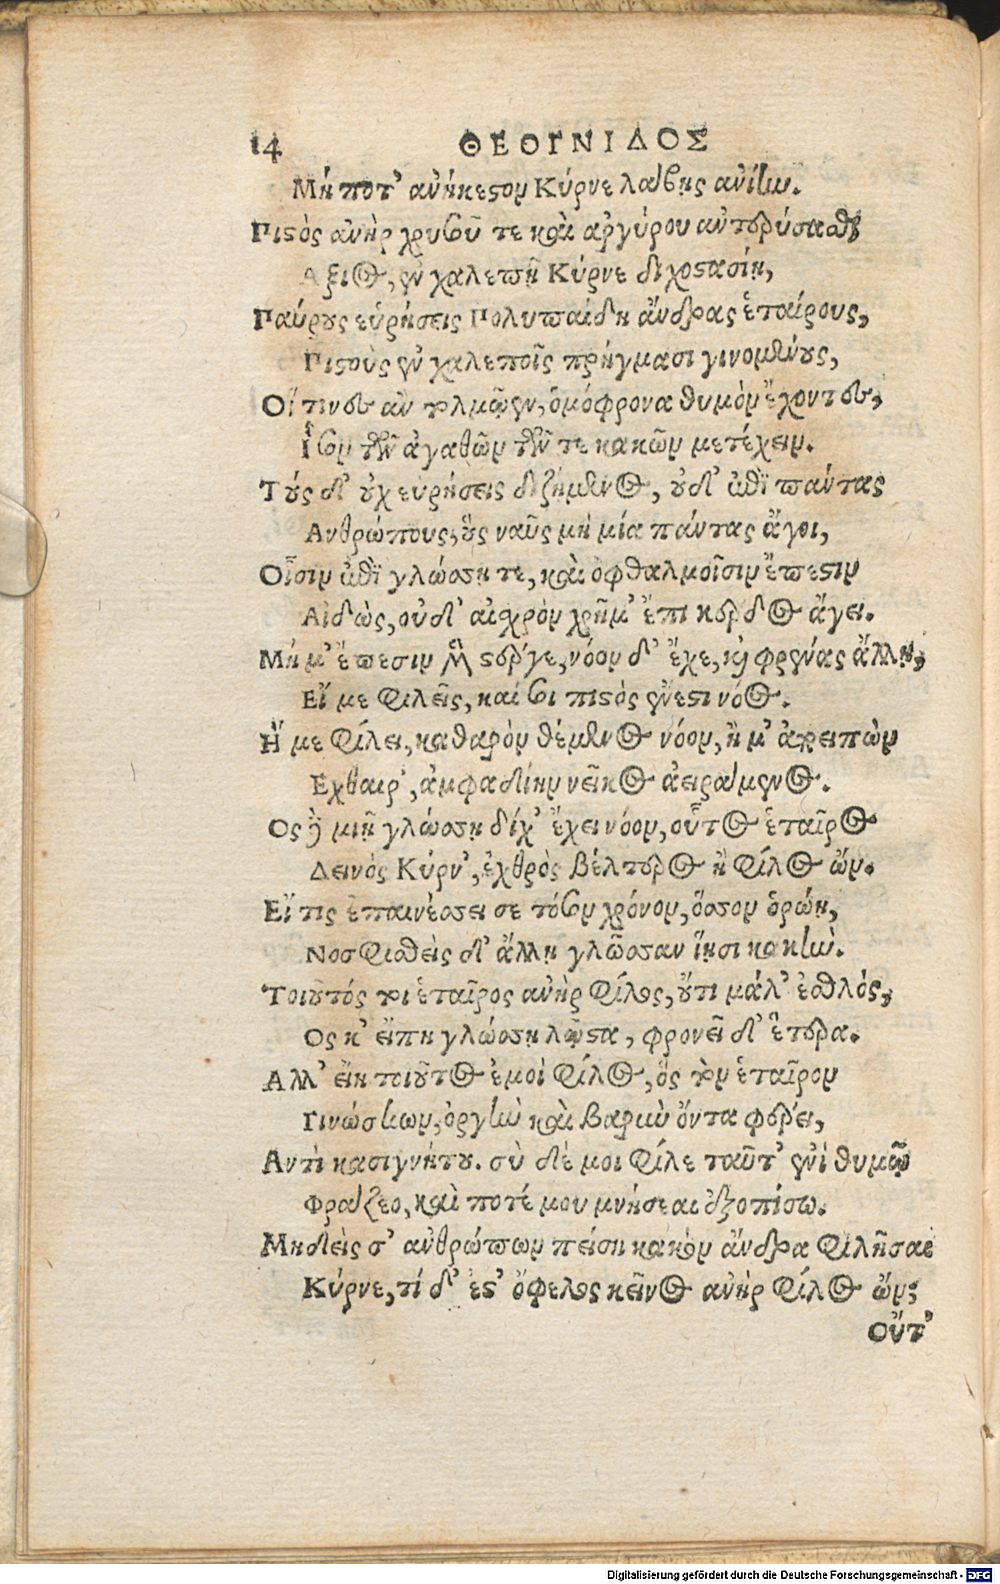 14 ΘΕΟΓΝΙΔΟΣ
Μή ποτ' ἀνήκεστον Κύρνε λάβῃς ἀνίην.
Πιστὸς ἀνὴρ χρυσοῦ τε καὶ ἀργύρου ἀντερύσασθαι
Αξιος, ἐν χαλεπῇ Κύρνε διχοστασίῃ,
Παύρους εὑρήσεις Πολυπαίδη ἄνδρας ἑταίρους,
Πιστοὺς ἐν χαλεποῖς πρήγμασι γινομένους,
Οἵ τινες ἂν τολμῷεν, ὁμόφρονα θυμὸν ἔχοντες,
Ἶσον τῶν ἀγαθῶν τῶν τε κακῶν μετέχειν.
Τούς δ' οὐχ εὑρήσεις διζήμενος, οὐδ' ἐπὶ πάντας
Ανθρώπους, οὓς ναῦς μὴ μία πάντας ἄγοι,
Οἷσιν ἐπὶ γλώσσῃ τε, καὶ ὀφθαλμοῖσιν ἔπεστιν
Αἰδὼς, οὐδ' αἰσχρὸν χρῆμ' ἔπι κέρδος ἄγει.
Μή μ' ἔπεσιν μὲν στέργε, νόον δ' ἔχε, καὶ φρένας ἄλλῃ,
Εἴ με φιλεῖς, καί σοι πιστὸς ἔνεστι νόος.
Ἤ με φίλει, καθαρὸν θέμενος νόον, ἤ μ' ἀποειπὼν
Εχθαιρ', ἀμφαδίην νεῖκος ἀειράμενος.
Ος δὲ μιῇ γλώσσῃ δίχ' ἔχει νόον, οὗτος ἑταῖρος
Δεινὸς Κύρν', ἐχθρὸς βέλτερος ἢ φίλος ὤν.
Εἴ τις ἐπαινέσσει σε τόσον χρόνον, ὅσσον ὁρῴη,
Νοσφισθεὶς δ' ἄλλῃ γλῶσσαν ἵησι κακήν.
Τοιοῦτός τοι ἑταῖρος ἀνὴρ φίλος, οὔτι μάλ' ἐσθλός,
Ος κ' εἴπῃ γλώσσῃ λῷστα, φρονεῖ δ' ἕτερα.
Αλλ' εἴη τοιοῦτος ἐμοὶ φίλος, ὃς τὸν ἑταῖρον
Γινώσκων, ὀργὴν καὶ βαρὺν ὄντα φέρει,
Αντὶ κασιγνήτου. σὺ δέ μοι φίλε ταῦτ' ἐνὶ θυμῷ
Φράζεο, καὶ ποτέ μου μνήσεαι ἐξοπίσω.
Μηδεὶς σ' ἀνθρώπων πείσῃ κακὸν ἄνδρα φιλῆσαι
Κύρνε, τί δ' ἔστ' ὄφελος κεῖνος ἀνὴρ φίλος ὤν;
Οὔτ'
Digitalisierung gefördert durch die Deutsche Forschungsgemeinschaft - DFG